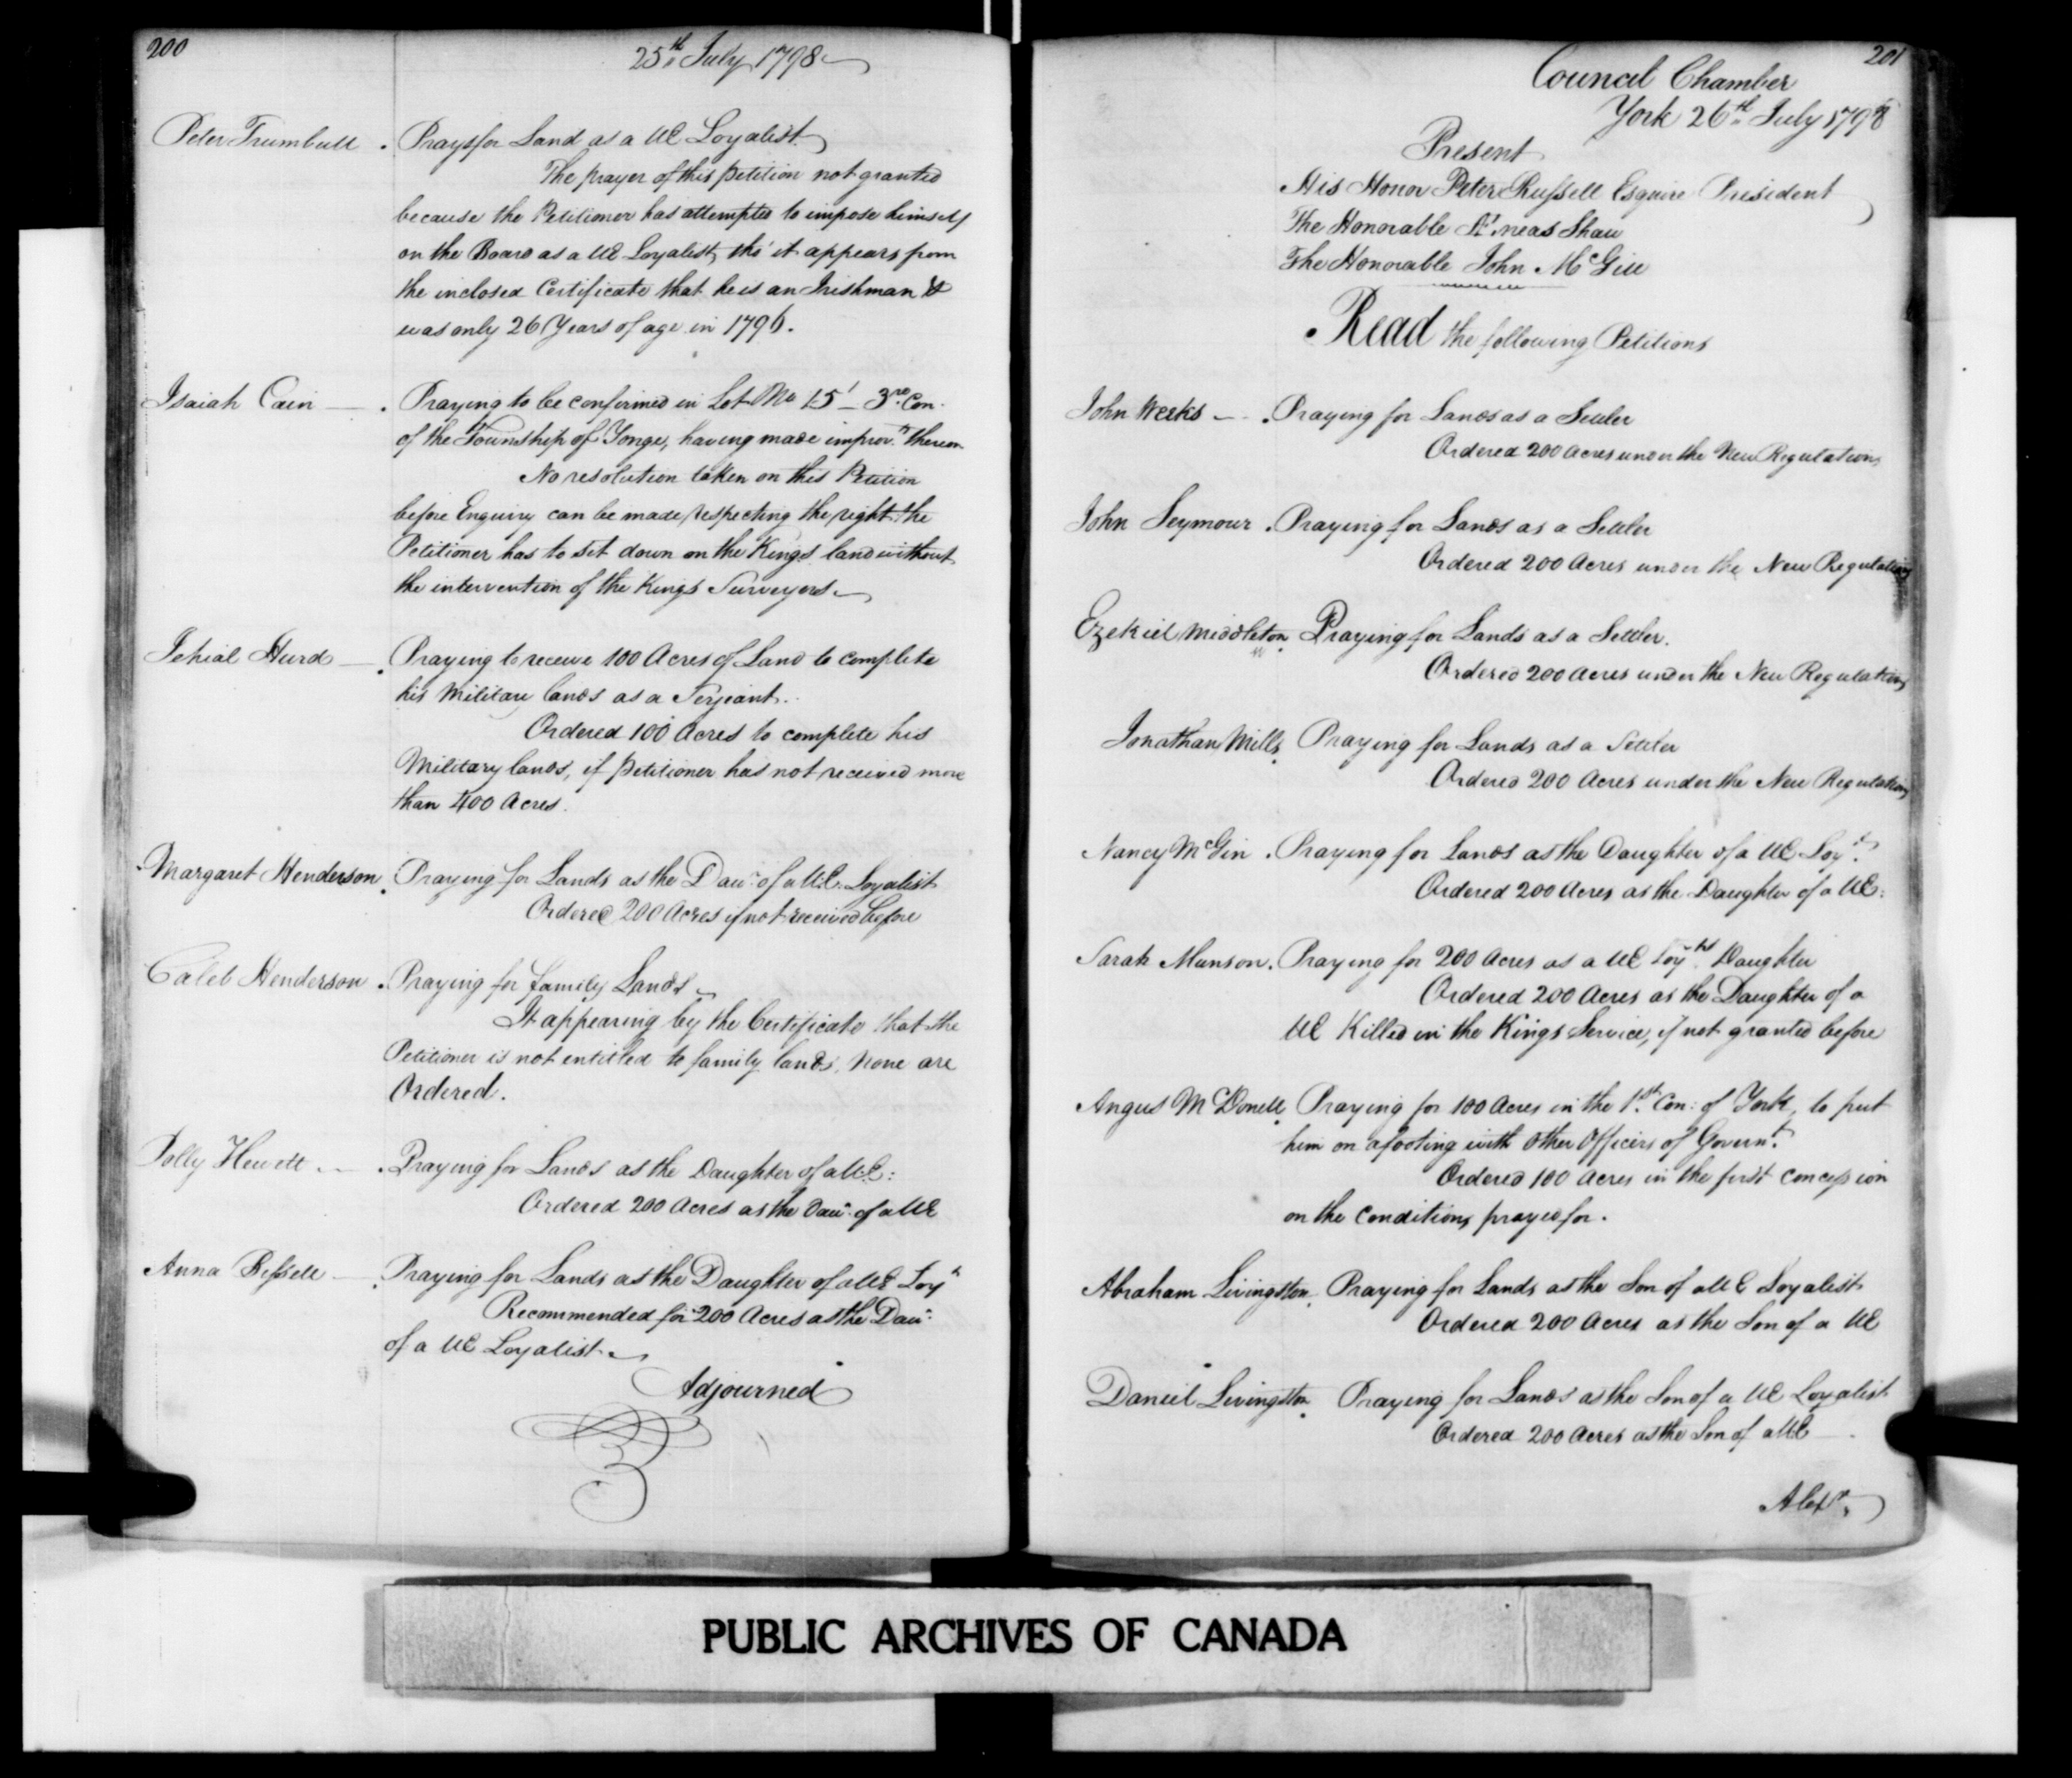 200
25th July 1798
Peter Trumbull . Prays for Land as a UE Loyalist
The prayer of this petition not granted
because the Petitioner has attempted to impose himself
on the Board as a UE Loyalist, tho' it appears from
the inclosed Certificate that he is an Irishman &
was only 26 Years of age in 1796.
Isaiah Cain — . Praying to be confirmed in Lot No 15 – 3rd Con.
of the Township of Yonge, having made improvts thereon
No resolution taken on this Petition
before Enquiry can be made respecting the right the
Petitioner has to set down on the Kings land without
the intervention of the Kings Surveyors
Jehial Hurd — . Praying to receive 100 Acres of Land to complete
his Military lands as a Serjeant.
Ordered 100 Acres to complete his
Military lands, if petitioner has not received more
than 400 Acres.
Margaret Henderson . Praying for Lands as the Daur of a U.E. Loyalist
Ordered 200 Acres if not received before
Caleb Henderson . Praying for family Lands
It appearing by the Certificate that the
Petitioner is not entitled to family lands, None are
Ordered.
Polly Hewett — . Praying for Lands as the Daughter of a UE:
Ordered 200 Acres as the Daur of a UE
Anna Bissell — . Praying for Lands as the Daughter of a UE Loyt
Recommended for 200 Acres as the Daur
of a UE Loyalist
Adjourned
201
Council Chamber
York 26th July 1798
Present
His Honor Peter Russell Esquire President
The Honorable Æneas Shaw
The Honorable John McGill
Read the following Petitions
John Weeks — . Praying for Lands as a Settler
Ordered 200 Acres under the New Regulations
John Seymour . Praying for Lands as a Settler
Ordered 200 Acres under the New Regulations
Ezekiel Middleton . Praying for Lands as a Settler.
Ordered 200 Acres under the New Regulations
Jonathan Mills . Praying for Lands as a Settler
Ordered 200 Acres under the New Regulations
Nancy McGin . Praying for Lands as the Daughter of a UE Loyt
Ordered 200 Acres as the Daughter of a UE:
Sarah Munson . Praying for 200 Acres as a UE Loyts Daughter
Ordered 200 Acres as the Daughter of a
UE Killed in the Kings Service, if not granted before
Angus McDonell . Praying for 100 Acres in the 1st Con: of York, to put
him on a footing with other Officers of Governt
Ordered 100 Acres in the first concession
on the conditions prayed for.
Abraham Livingston . Praying for Lands as the Son of a UE Loyalist
Ordered 200 Acres as the Son of a UE
Daniel Livingston . Praying for Lands as the Son of a UE Loyalist
Ordered 200 Acres as the Son of a UE
Alexr
PUBLIC ARCHIVES OF CANADA